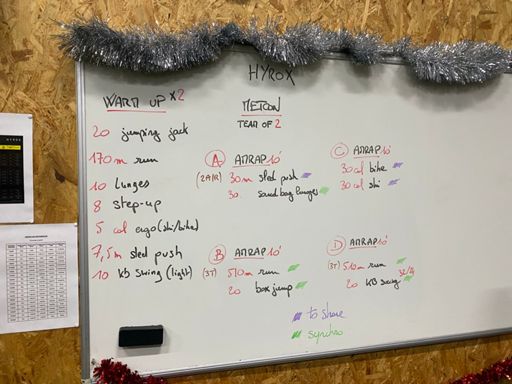 HYROX
WARM UP x2
20 jumping jack
170 m run
10 lunges
8 step-up
5 cal ergo (ski/bike)
7,5m sled push
10 KB swing (light)
METCON
TEAM OF 2
A AMRAP 10'
(2A/R) 30m sled push
30. sandbag lunges
B AMRAP 10'
(3T) 510m run
20 box jump
C AMRAP 10'
30 cal bike
30 cal ski
D AMRAP 10'
(3T) 510m run
20 KB swing 32/24
to share
synchro